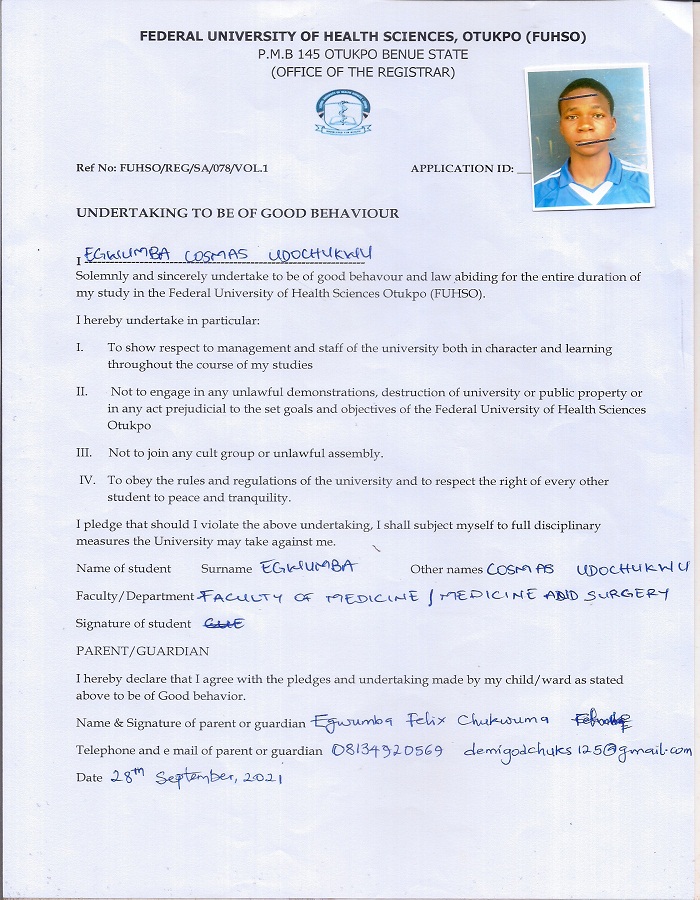 FEDERAL UNIVERSITY OF HEALTH SCIENCES, OTUKPO (FUHSO)
P.M.B 145 OTUKPO BENUE STATE
(OFFICE OF THE REGISTRAR)
Ref No: FUHSO/REG/SA/078/VOL.1 APPLICATION ID:
UNDERTAKING TO BE OF GOOD BEHAVIOUR
I EGWUMBA COSMAS UDOCHUKWU
Solemnly and sincerely undertake to be of good behavour and law abiding for the entire duration of
my study in the Federal University of Health Sciences Otukpo (FUHSO).
I hereby undertake in particular:
I. To show respect to management and staff of the university both in character and learning
throughout the course of my studies
II. Not to engage in any unlawful demonstrations, destruction of university or public property or
in any act prejudicial to the set goals and objectives of the Federal University of Health Sciences
Otukpo
III. Not to join any cult group or unlawful assembly.
IV. To obey the rules and regulations of the university and to respect the right of every other
student to peace and tranquility.
I pledge that should I violate the above undertaking, I shall subject myself to full disciplinary
measures the University may take against me.
Name of student Surname EGWUMBA Other names COSMAS UDOCHUKWU
Faculty/Department FACULTY OF MEDICINE / MEDICINE AND SURGERY
Signature of student
PARENT/GUARDIAN
I hereby declare that I agree with the pledges and undertaking made by my child/ward as stated
above to be of Good behavior.
Name & Signature of parent or guardian Egwumba Felix Chukwuma
Telephone and e mail of parent or guardian 08134920569 demigodchuks125@gmail.com
Date 28th September, 2021